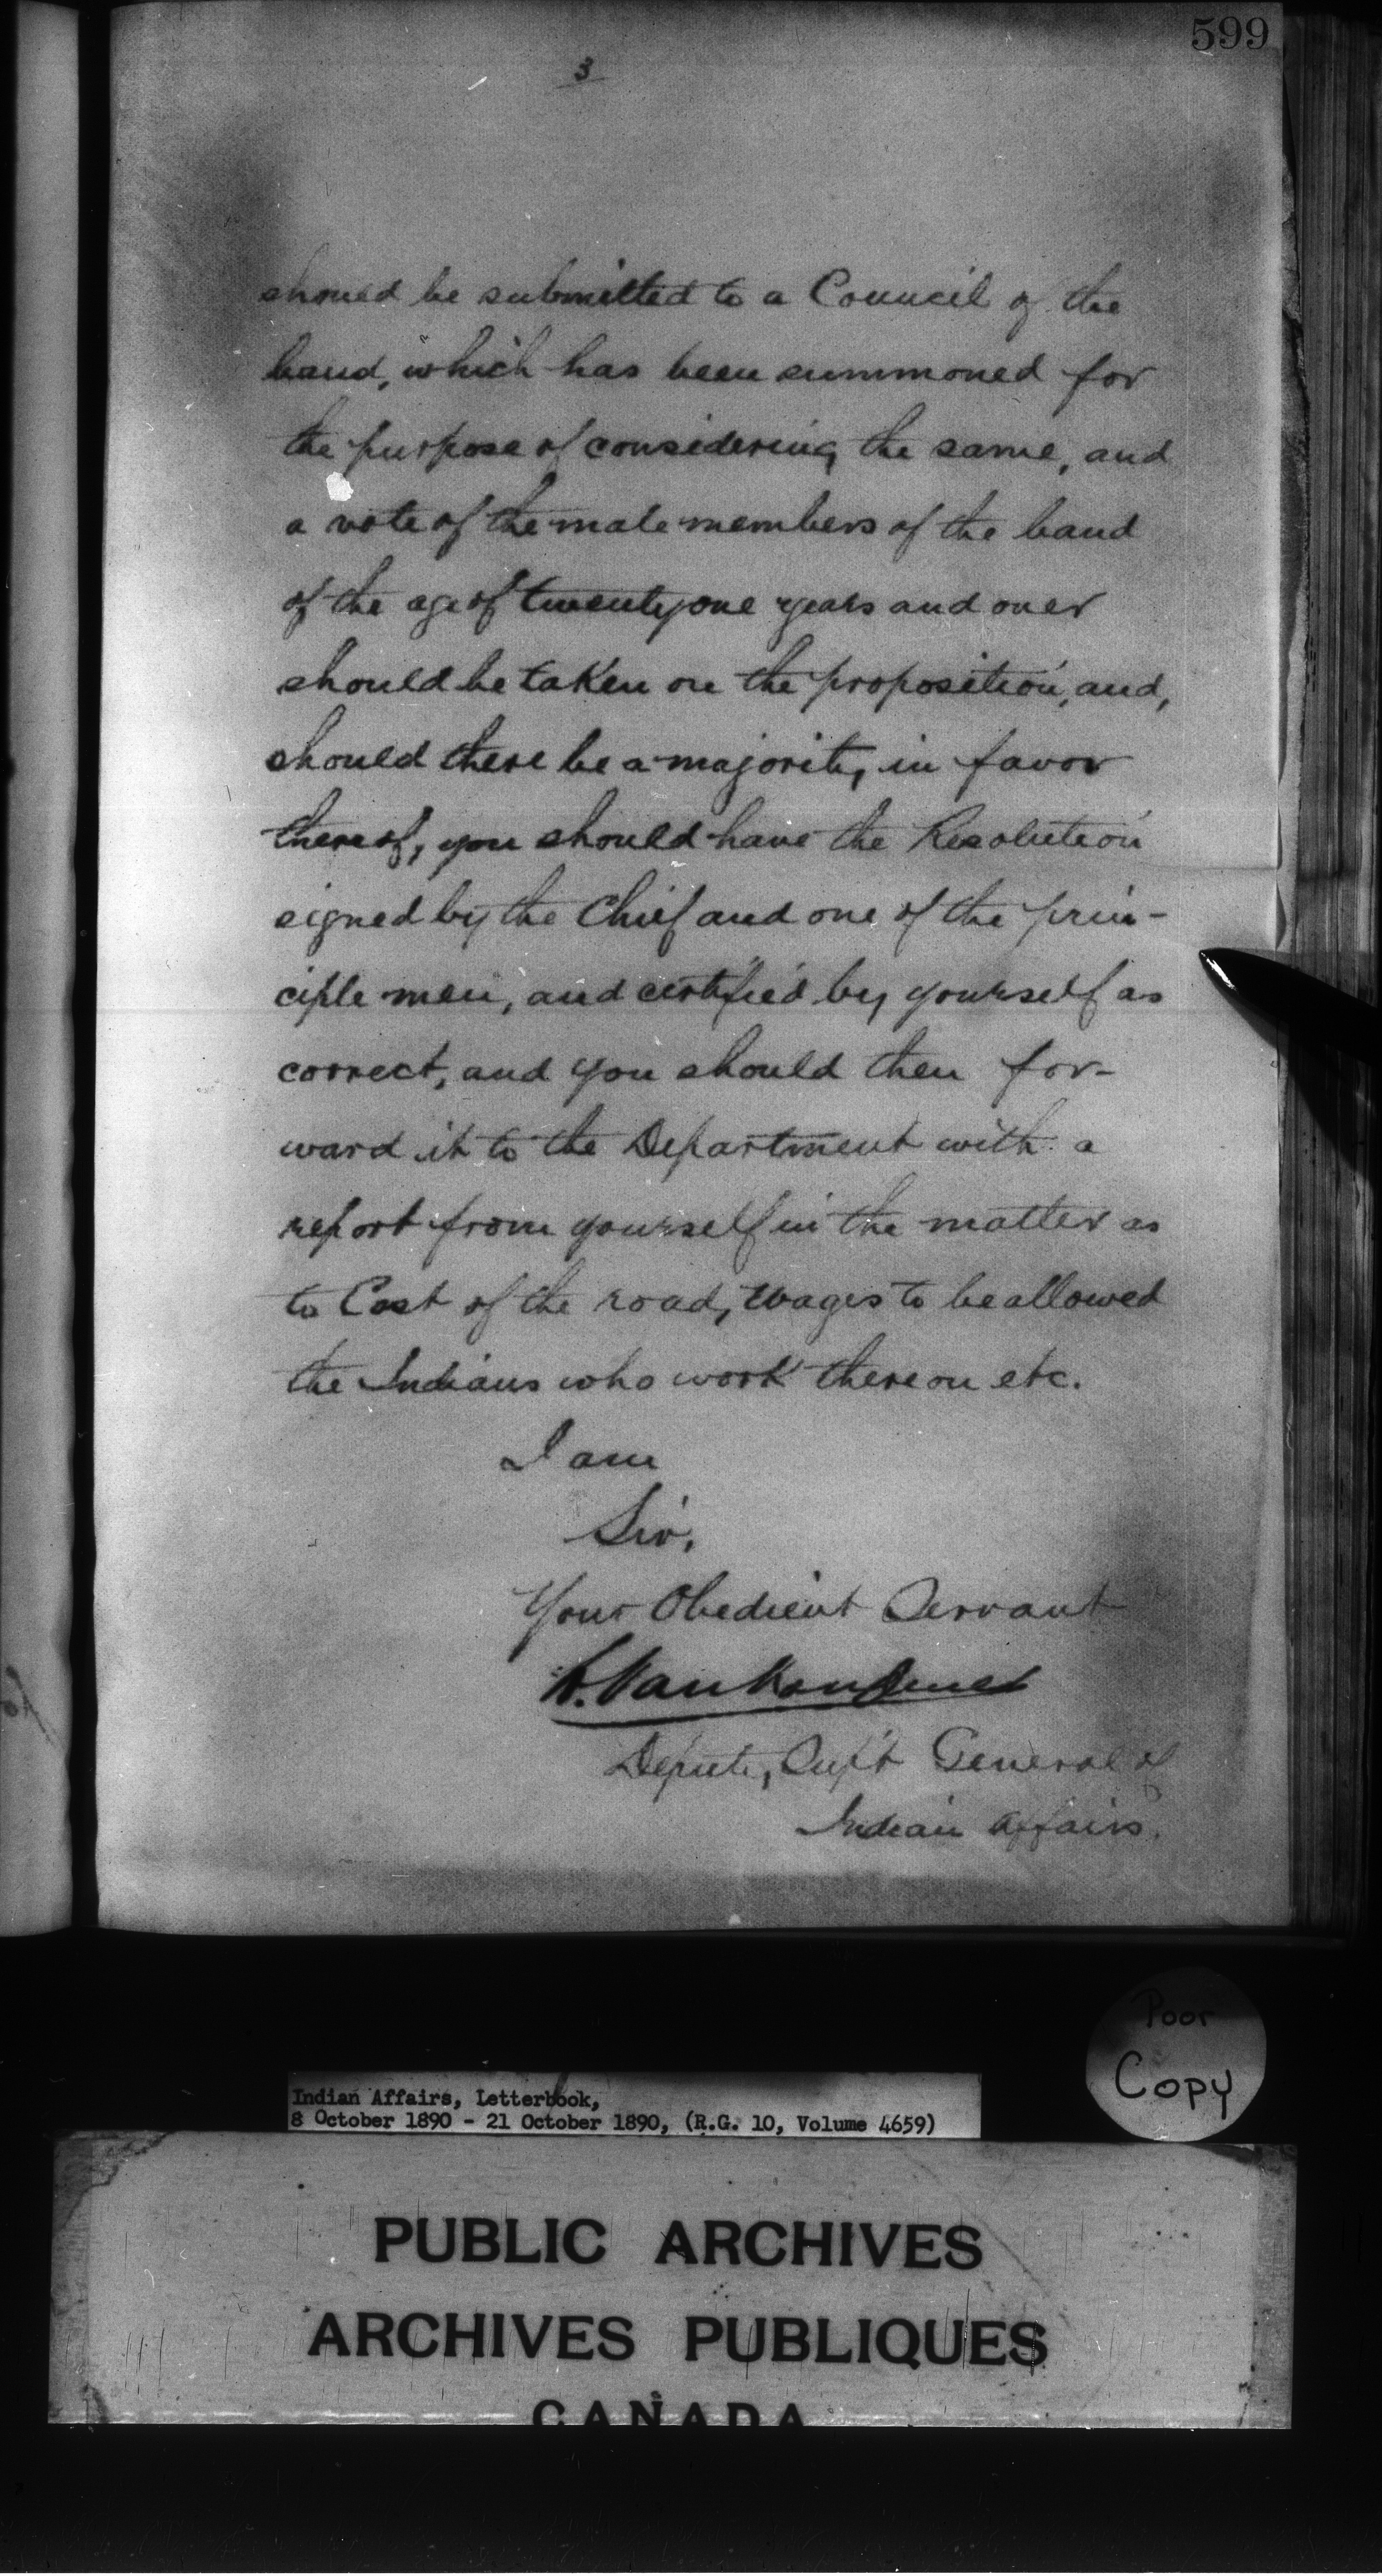 599
3
should be submitted to a Council of the
band, which has been summoned for
the purpose of considering the same, and
a vote of the male members of the band
of the age of twenty one years and over
should be taken on the proposition, and,
should there be a majority in favor
thereof, you should have the Resolution
signed by the Chief and one of the prin-
ciple men, and certified by yourself as
correct, and you should then for-
ward it to the Department with a
report from yourself in the matter as
to Cost of the road, wages to be allowed
the Indians who work thereon etc.
I am
Sir,
Your Obedient Servant
L. Vankoughnet
Deputy Sup't General of
Indian Affairs.
Poor
Copy
Indian Affairs, Letterbook,
8 October 1890 - 21 October 1890, (R.G. 10, Volume 4659)
PUBLIC ARCHIVES
ARCHIVES PUBLIQUES
CANADA